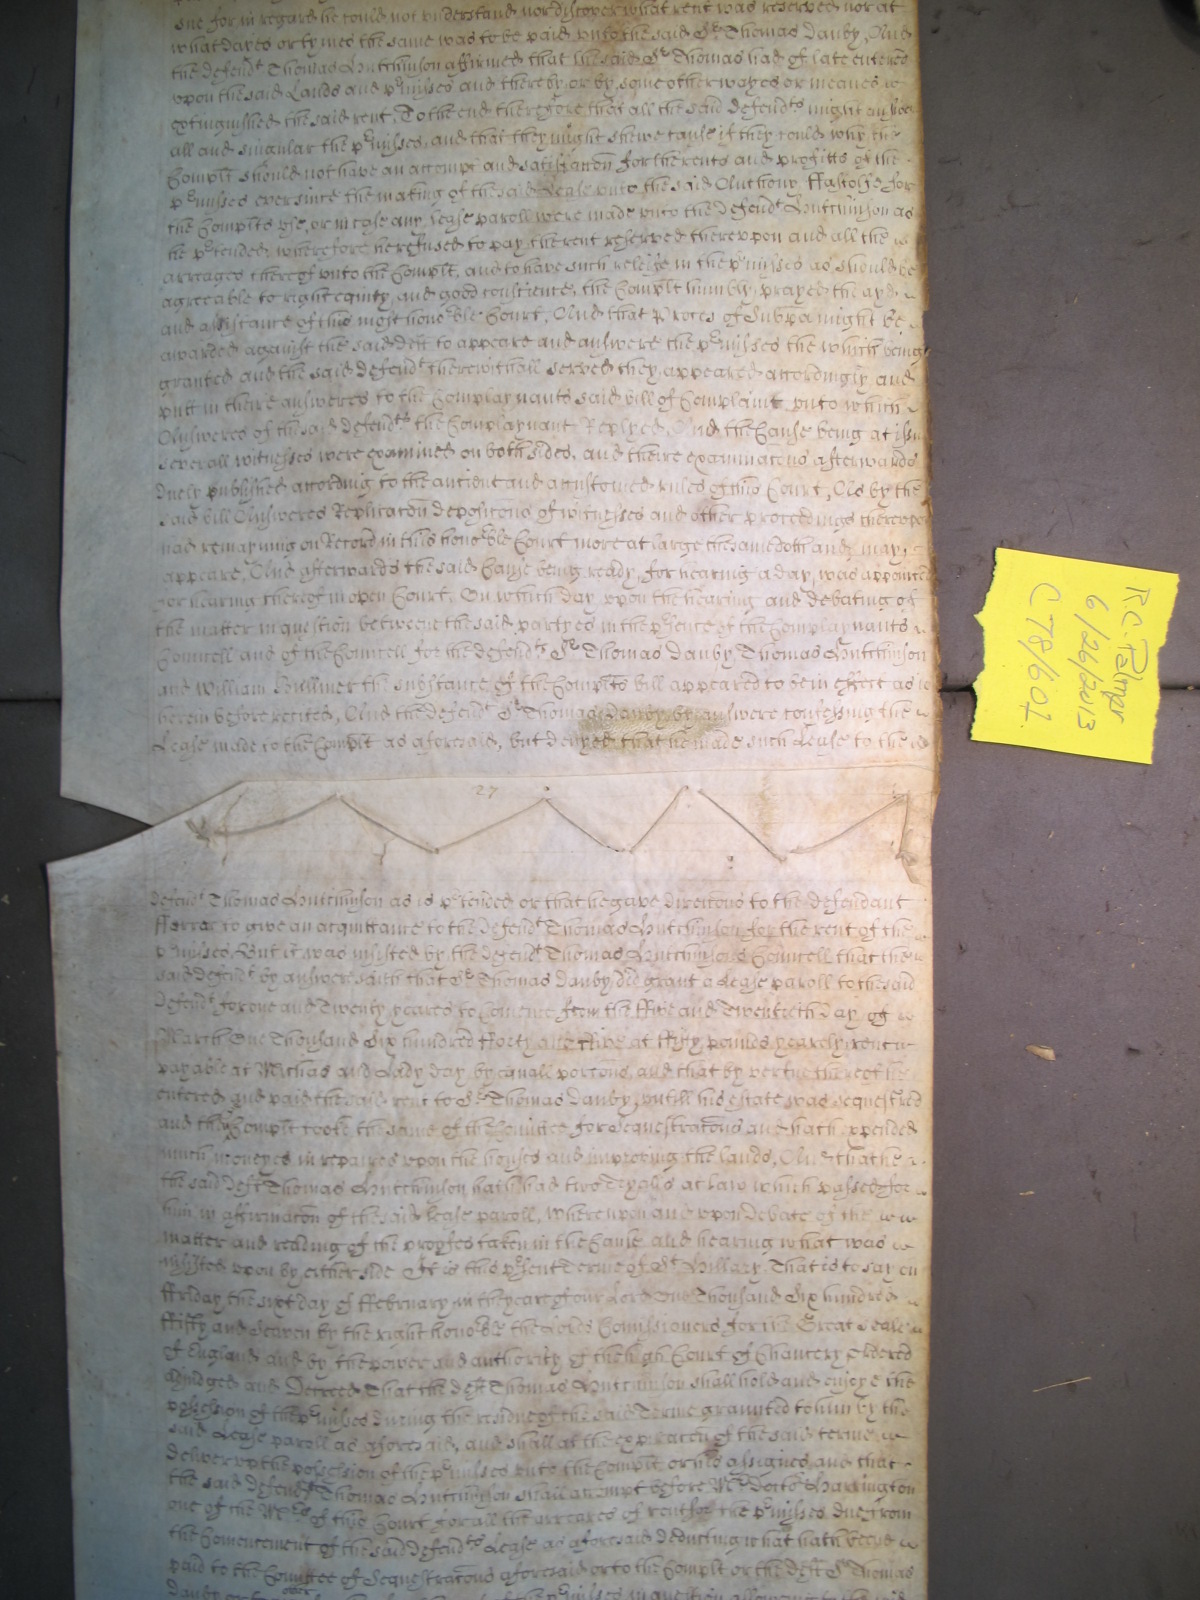 one for in regard he could not understand nor discover what rent was reserved nor at
what dayes or tymes the same was to be paid unto the said Sr Thomas Danby, And
the defendt Thomas Hutchinson affirmed that the said Sr Thomas had of late entered
upon the said Lands and pmisses and thereby or by some other wayes or meanes
extinguished the said rent, To the end therefore that all the said defendts might answere
all and singular the pmisses, and that they might shewe cause if they could why the
Complt should not have an accompt and satisfaccon for the rents and profitts of the
pmisses ever since the making of the said Lease unto the said Anthony for
the Complts use, or in case any lease paroll were made unto the defendt Hutchinson as
he ptended, wherefore he refused to pay the rent reserved thereupon and all the
arreages thereof unto the Complt, and to have such releife in the pmisses as should be
agreeable to right equity and good conscience, the Complt humbly prayed the ayd
and assistance of this most honoble Court, And that Proces of Subpena might be
awarded against the said defts to appeare and answere the pmisses the which being
granted and the said defendts therewithall served they appeared accordingly and
putt in theire answeres to the Complaynants said bill of Complaint, unto which
Answeres of the said defendts the Complaynant Replyed, And the Cause being at issue
severall witnesses were examined on both sides, and theire examinacons afterwards
duely published according to the antient and accustomed rules of this Court, As by the
said bill Answeres Replicacon deposicons of witnesses and other proceedings thereupon
had remayning on Record in this honoble Court more at large the same doth and may
appeare, And afterwards the said Cause being ready for hearing a day was appointed
for hearing thereof in open Court, On which day upon the hearing and debating of
the matter in question betweene the said partyes in the psence of the Complaynants
Councell and of the Councell for the defendts Sr Thomas Danby, Thomas Hutchinson
and William Bullmer the substance of the Complts bill appeared to be in effect as is
herein before recited, And the defendt Sr Thomas Danby by answere confessing the
Lease made to the Complt as aforesaid, but denyed that he made such Lease to the
27
defendt Thomas Hutchinson as is ptended or that he gave direccons to the defendant
to give an acquittance to the defendt Thomas Hutchinson for the rent of the
pmisses But it was insisted by the defendt Thomas Hutchinsons Councell that the
said defendt by answere saith that Sr Thomas Danby did grant a Lease paroll to the said
Defendt for one and Twenty yeares to Comence from the ffive and Twentieth Day of
March One Thousand Six hundred fforty and ffive at ffifty pounds yearely rent
payable at Michas and Lady day by equall porcons, and that by vertue thereof he
entered and paid the said rent to Sr Thomas Danby untill his estate was sequestred
and then Complt tooke the same of the Comittee for Sequestracons and hath expended
much moneyes in repaires upon the houses and improving the lands, And that he
the said deft Thomas Hutchinson hath had two Tryalls at law which passed for
him in affirmacon of the said lease paroll, Whereupon and upon debate of the
matter and reading of the proofes taken in the Cause and hearing what was
insisted upon by either side It is this psent Terme of St Hillary That is to say on
ffriday the sixt day of ffebruary in the yeare of our Lord One Thousand Six hundred
ffifty and Seaven by the right honoble the Lords Comissioners for the Great Seale
of England and by the power and authority of the high Court of Chancery Ordered
Adjudged and Decreed That the deft Thomas Hutchinson shall hold and enjoye the
possession of the pmisses during the residue of the said Terme graunted to him by the
said Lease paroll as aforesaid, and shall at the expiracon of the said terme
deliver up the possession of the pmisses unto the Complt or his assignes and that
the said defendt Thomas Hutchinson shall accompt before Mr Doctor Harrington
one of the Mrs of this Court for all the arreares of rent of the pmisses due from
the Comencement of the said defendts Lease as aforesaid deducting what hath beene
paid to the Comittee of Sequestracons aforesaid or to the Complt or the deft Sr Thomas
Danby or the pmisses in question allowing to the said
R.C. Palmer
6/26/2013
C 78/601